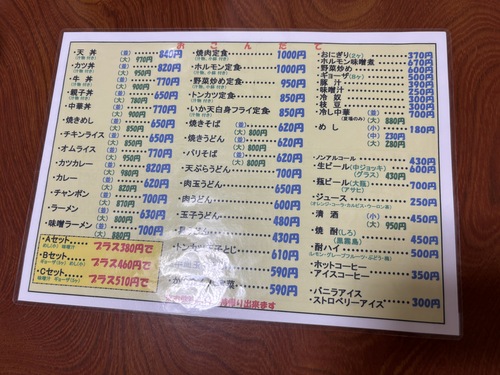 おこんだて
・天丼 (並) 840円
(汁物、付き) (大) 970円
・カツ丼 (並) 820円
(汁物 付き) (大) 950円
・牛丼 (並) 770円
(汁物 付き) (大) 900円
・親子丼 (並) 650円
(汁物 付き) (大) 780円
・中華丼 (並) 770円
(大) 900円
・焼きめし (並) 650円
(大) 780円
・チキンライス (並) 650円
(大) 780円
・オムライス (並) 770円
(大) 950円
・カツカレー (並) 820円
(大) 980円
・カレー (並) 620円
(大) 780円
・チャンポン (並) 770円
(大) 870円
・ラーメン (並) 630円
(大) 800円
・味噌ラーメン (並) 700円
(大) 880円
・Aセット プラス380円で
・Bセット プラス460円で
・Cセット プラス510円で
・焼肉定食 1000円
・ホルモン定食 1000円
・野菜炒め定食 950円
・トンカツ定食 850円
・いか天白身フライ定食 850円
・焼きそば (並) 620円
(大) 800円
・焼きうどん (並) 620円
(大) 800円
・バリそば (並) 620円
(大) 800円
・天ぷらうどん 750円
・肉玉うどん 650円
・肉うどん 600円
・玉子うどん 480円
610円
590円
590円
出来ます
・おにぎり(2ケ) 370円
・ホルモン味噌煮 670円
・野菜炒め 600円
・ギョーザ(8ケ) 380円
・豚汁
・味噌汁
・冷奴
・枝豆
・冷し中華 (並) 700円
(夏場のみ) (大) 880円
・めし (小) 180円
(中) 230円
(大) 280円
・ノンアルコール 430円
・生ビール(中ジョッキ) 600円
(グラス) 430円
・瓶ビール(大瓶) 700円
(アサヒ)
・ジュース 250円
(オレンジ・コーラ・カルピス・ウーロン茶)
・清酒 (小) 450円
(大) 950円
・焼酎(しろ) 450円
(黒霧島)
・酎ハイ 500円
(レモン・グレープフルーツ・ぶどう・梅)
・ホットコーヒー
・アイスコーヒー 350円
・バニラアイス
・ストロベリーアイス 300円